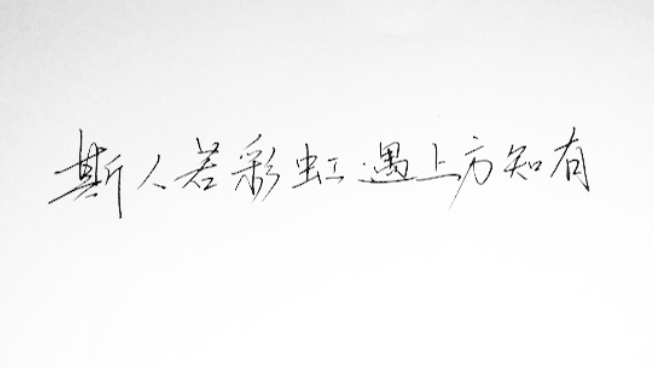 斯人若彩虹遇上方知有